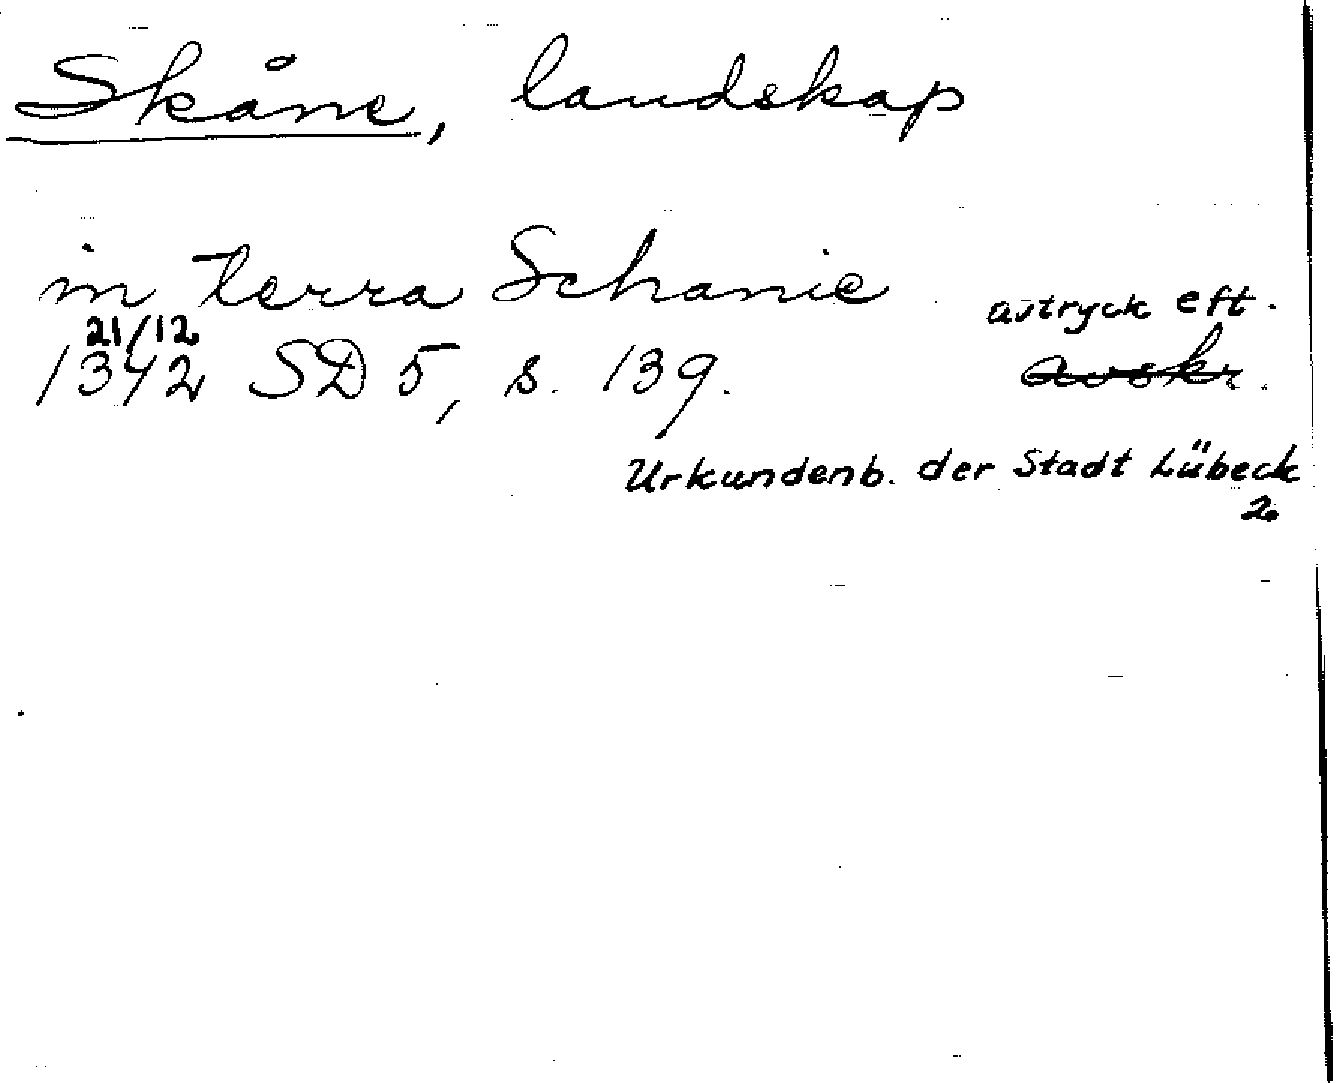 Skåne, landskap
in terra Schanie
avtryck eft.
21/12
1342 SD 5, s. 139.
avskr.
Urkundenb. der Stadt Lübeck
2.